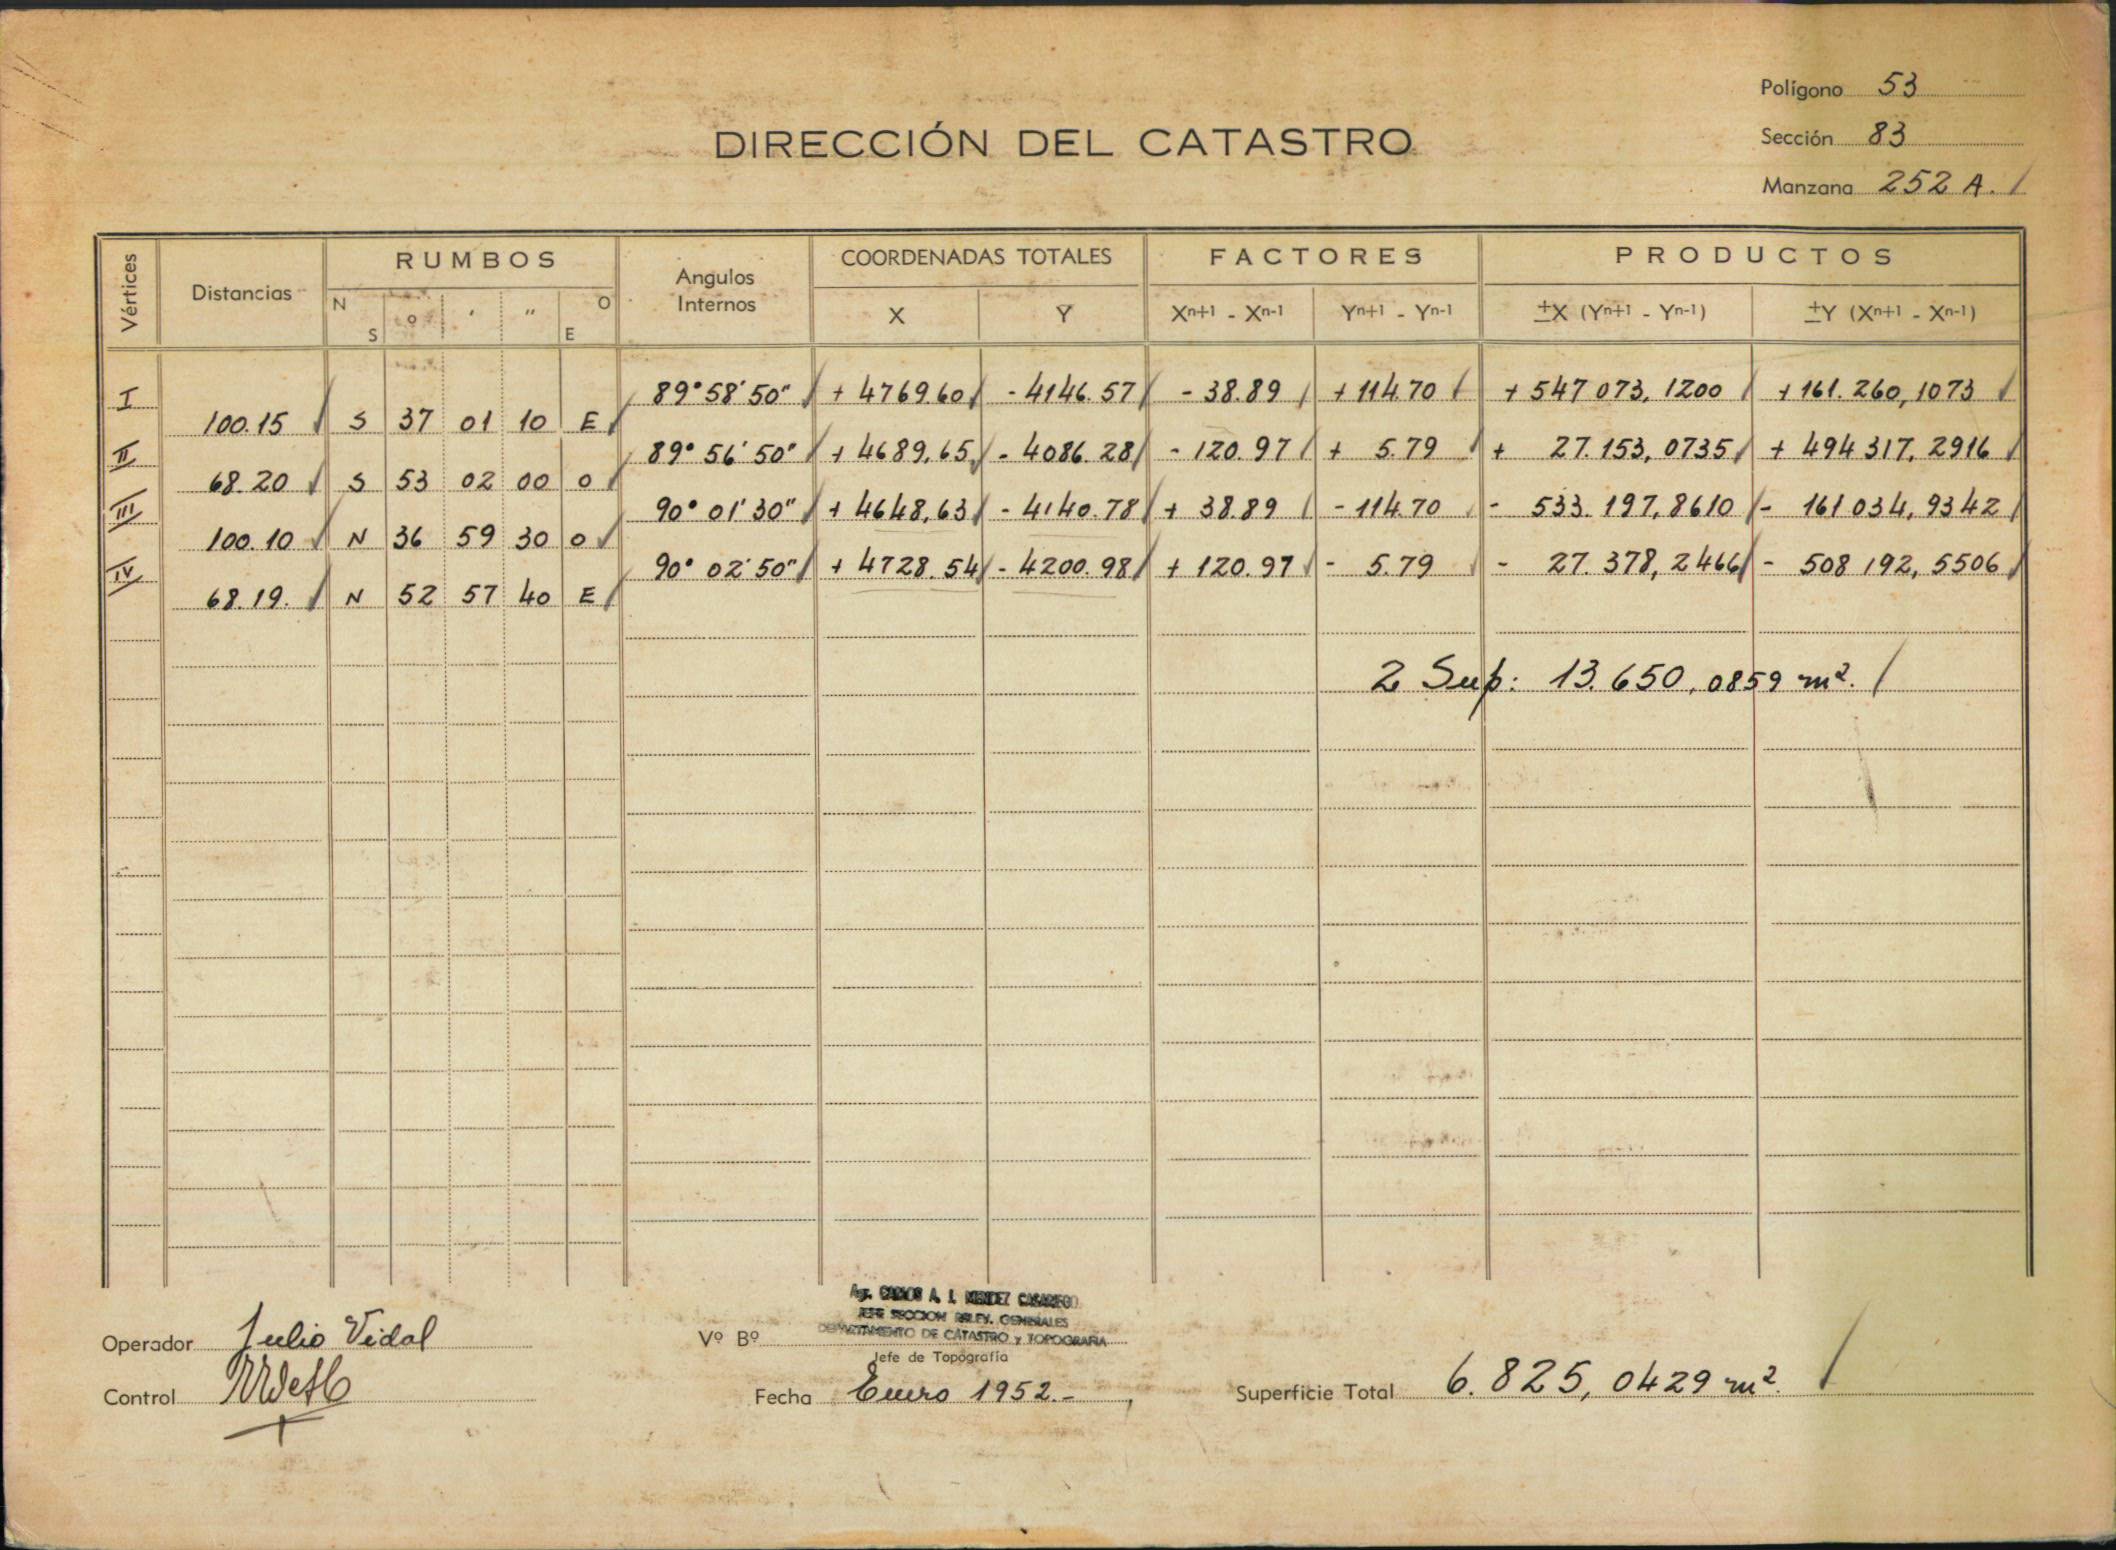 Polígono 53
Sección 83
Manzana 252 A.
DIRECCIÓN DEL CATASTRO
Vértices Distancias RUMBOS Angulos Internos COORDENADAS TOTALES FACTORES PRODUCTOS
N S o ' " O E X Y Xn+1 - Xn-1 Yn+1 - Yn-1 ±X (Yn+1 - Yn-1) ±Y (Xn+1 - Xn-1)
I 89° 58' 50" + 4769.60 - 4146.57 - 38.89 + 114.70 + 547 073, 1200 + 161. 260, 1073
100.15 S 37 01 10 E
II 89° 56' 50" + 4689,65 - 4086.28 - 120.97 + 5.79 + 27.153, 0735 + 494 317, 2916
68.20 S 53 02 00 O
III 90° 01' 30" + 4648,63 - 4140.78 + 38.89 - 114.70 - 533. 197, 8610 - 161 034, 9342
100.10 N 36 59 30 O
IV 90° 02' 50" + 4728.54 - 4200.98 + 120.97 - 5.79 - 27. 378, 2466 - 508 192, 5506
68.19. N 52 57 40 E
2 Sup: 13.650, 0859 m².
Operador Julio Vidal
Control
Vº Bº
Agr. CARLOS A. I. MENDEZ CASARIEGO
JEFE SECCION RELEV. GENERALES
DEPARTAMENTO DE CATASTRO y TOPOGRAFIA
Jefe de Topografía
Fecha Enero 1952.-
Superficie Total 6.825, 0429 m².